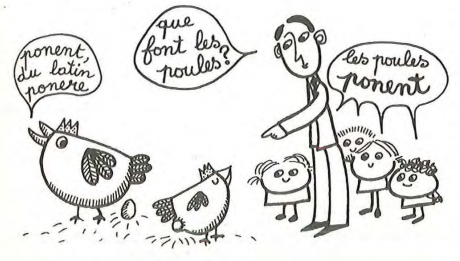 ponent,
du latin
ponere
que
font les
poules?
les poules
ponent